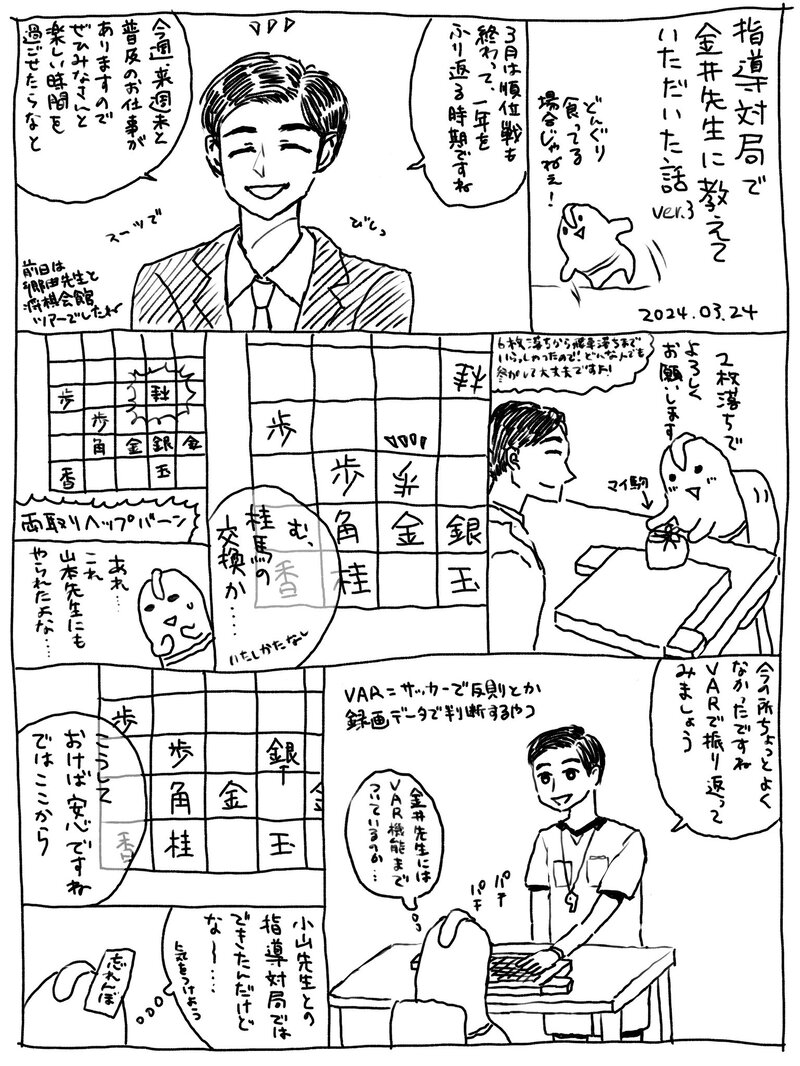 指導対局で
金井先生に教えて
いただいた話
ver.3
どんぐり
食ってる
場合じゃねぇ!
2024.03.24
3月は順位戦も
終わって、一年を
ふり返る時期ですね
今週・来週末と
普及のお仕事が
ありますので
ぜひみなさんと
楽しい時間を
過ごせたらなと
スーツで
びしっ
前日は
郷田先生と
将棋会館
ツアーでしたね
2枚落ちで
よろしく
お願いします
6枚落ちから飛車落ちまで
いらっしゃったので!どんなんでも
マイ駒
桂
歩
歩
角
金
銀
香
桂
玉
む、
桂馬の
交換か…
いたしかたなし
歩
桂
歩
角
金
銀
金
香
玉
両取りヘップバーン
あれ…
これ
山本先生にも
やられたよな……
今の所ちょっとよく
なかったですね
VARで振り返って
みましょう
VAR=サッカーで反則とか
録画データで判断するやつ
金井先生には
VAR機能まで
ついているのか…
パチ
パチ
歩
歩
銀
角
金
金
香
桂
玉
こうして
おけば安心ですね
ではここから
小山先生との
指導対局では
できたんだけど
な〜……
気をつけよう
忘れんぼ